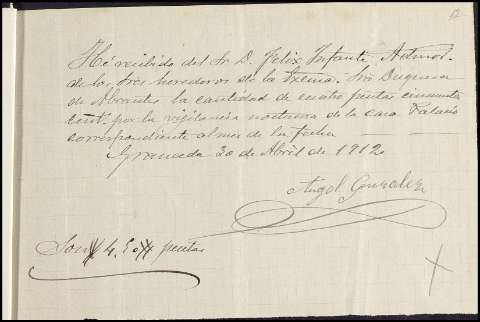 12
He recibido del Sr. D. Felix Infante, Admor.
de los tres herederos de la Exema. Sra Duquesa
de Abrantes la cantidad de cuatro pesetas cincuenta
cent. por la vigilancia nocturna de la casa Palacio
correspondiente al mes de la fecha
Granada 30 de Abril de 1912
Angel Gonzalez
Son 4,50 pesetas